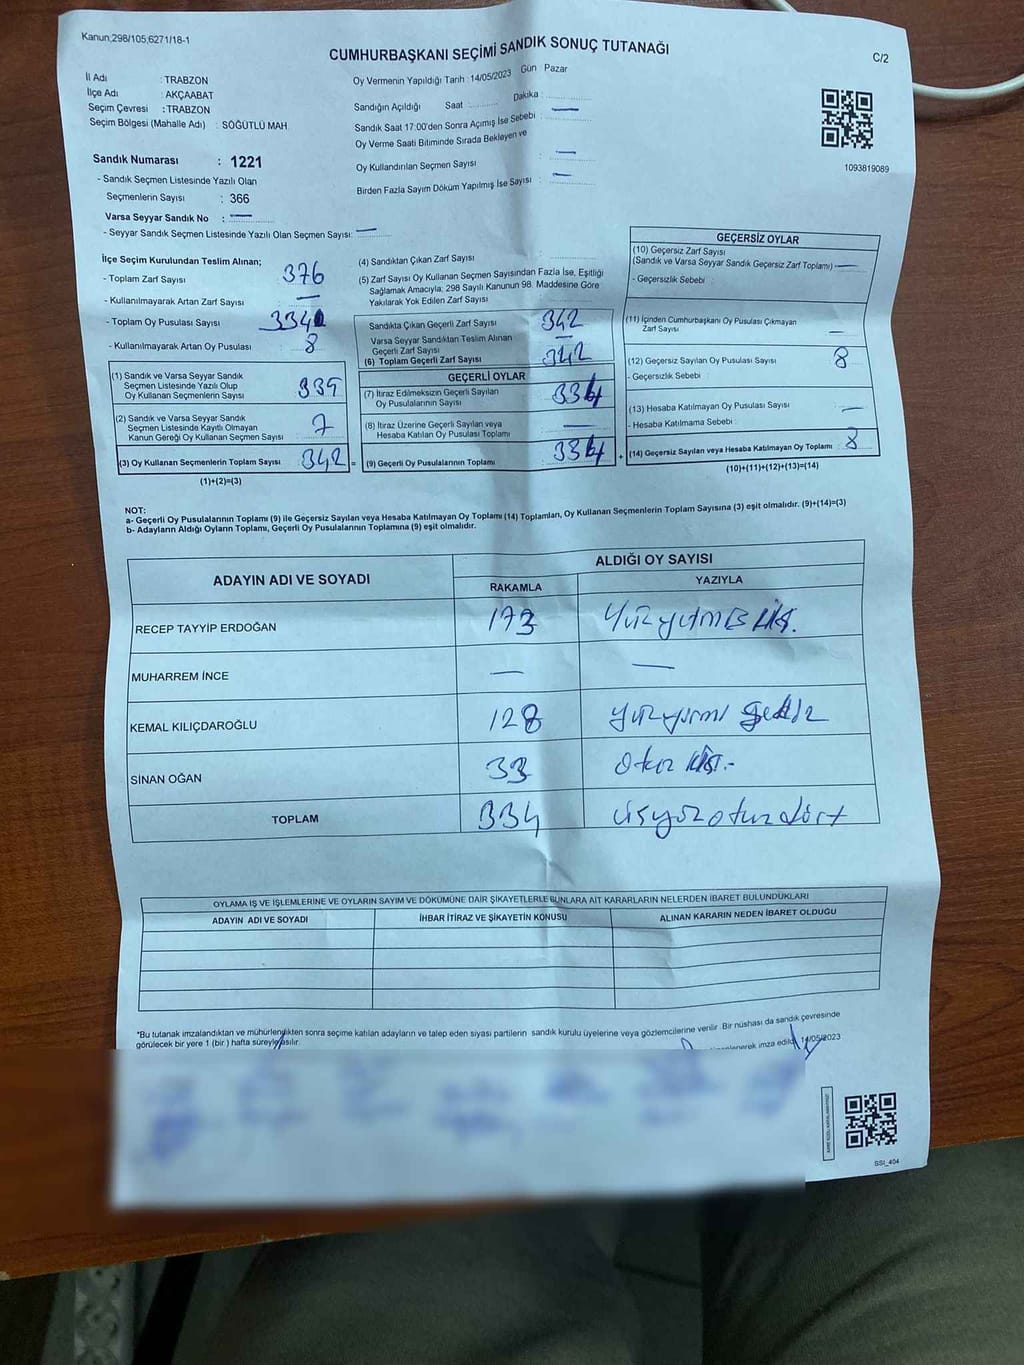 Kanun;298/105,6271/18-1
CUMHURBAŞKANI SEÇİMİ SANDIK SONUÇ TUTANAĞI
C/2
İl Adı : TRABZON
İlçe Adı : AKÇAABAT
Seçim Çevresi : TRABZON
Seçim Bölgesi (Mahalle Adı) : SÖĞÜTLÜ MAH.
Sandık Numarası : 1221
- Sandık Seçmen Listesinde Yazılı Olan
Seçmenlerin Sayısı : 366
Varsa Seyyar Sandık No : —
- Seyyar Sandık Seçmen Listesinde Yazılı Olan Seçmen Sayısı: —
Oy Vermenin Yapıldığı Tarih :14/05/2023 Gün Pazar
Sandığın Açıldığı Saat :......... Dakika :.........
Sandık Saat 17:00'den Sonra Açımış İse Sebebi : —
Oy Verme Saati Bitiminde Sırada Bekleyen ve
Oy Kullandırılan Seçmen Sayısı : —
Birden Fazla Sayım Döküm Yapılmış İse Sayısı : —
1093819089
İlçe Seçim Kurulundan Teslim Alınan;
- Toplam Zarf Sayısı : 376
- Kullanılmayarak Artan Zarf Sayısı : —
- Toplam Oy Pusulası Sayısı
- Kullanılmayarak Artan Oy Pusulası : 8
(1) Sandık ve Varsa Seyyar Sandık
Seçmen Listesinde Yazılı Olup
Oy Kullanan Seçmenlerin Sayısı : 335
(2) Sandık ve Varsa Seyyar Sandık
Seçmen Listesinde Kayıtlı Olmayan
Kanun Gereği Oy Kullanan Seçmen Sayısı : 7
(3) Oy Kullanan Seçmenlerin Toplam Sayısı : 342 =
(1)+(2)=(3)
(4) Sandıktan Çıkan Zarf Sayısı :
(5) Zarf Sayısı Oy Kullanan Seçmen Sayısından Fazla İse, Eşitliği
Sağlamak Amacıyla; 298 Sayılı Kanunun 98. Maddesine Göre
Yakılarak Yok Edilen Zarf Sayısı :
Sandıkta Çıkan Geçerli Zarf Sayısı : 342
Varsa Seyyar Sandıktan Teslim Alınan
Geçerli Zarf Sayısı : —
(6) Toplam Geçerli Zarf Sayısı : 342
GEÇERLİ OYLAR
(7) İtiraz Edilmeksizin Geçerli Sayılan
Oy Pusulalarının Sayısı : 334
(8) İtiraz Üzerine Geçerli Sayılan veya
Hesaba Katılan Oy Pusulası Toplamı : —
(9) Geçerli Oy Pusulalarının Toplamı : 334 +
GEÇERSİZ OYLAR
(10) Geçersiz Zarf Sayısı
(Sandık ve Varsa Seyyar Sandık Geçersiz Zarf Toplamı) —
- Geçersizlik Sebebi :
(11) İçinden Cumhurbaşkanı Oy Pusulası Çıkmayan
Zarf Sayısı : —
(12) Geçersiz Sayılan Oy Pusulası Sayısı : 8
- Geçersizlik Sebebi :
(13) Hesaba Katılmayan Oy Pusulası Sayısı : —
- Hesaba Katılmama Sebebi :
(14) Geçersiz Sayılan veya Hesaba Katılmayan Oy Toplamı : 8
(10)+(11)+(12)+(13)=(14)
NOT:
a- Geçerli Oy Pusulalarının Toplamı (9) ile Geçersiz Sayılan veya Hesaba Katılmayan Oy Toplamı (14) Toplamları, Oy Kullanan Seçmenlerin Toplam Sayısına (3) eşit olmalıdır. (9)+(14)=(3)
b- Adayların Aldığı Oyların Toplamı, Geçerli Oy Pusulalarının Toplamına (9) eşit olmalıdır.
ADAYIN ADI VE SOYADI
ALDIĞI OY SAYISI
RAKAMLA YAZIYLA
RECEP TAYYİP ERDOĞAN 173
MUHARREM İNCE — —
KEMAL KILIÇDAROĞLU 128 yüzyirmi sekiz
SİNAN OĞAN 33
TOPLAM 334 üçyüzotuzdört
OYLAMA İŞ VE İŞLEMLERİNE VE OYLARIN SAYIM VE DÖKÜMÜNE DAİR ŞİKAYETLERLE BUNLARA AİT KARARLARIN NELERDEN İBARET BULUNDUKLARI
ADAYIN ADI VE SOYADI İHBAR İTİRAZ VE ŞİKAYETİN KONUSU ALINAN KARARIN NEDEN İBARET OLDUĞU
*Bu tutanak imzalandıktan ve mühürlendikten sonra seçime katılan adayların ve talep eden siyasi partilerin sandık kurulu üyelerine veya gözlemcilerine verilir. Bir nüshası da sandık çevresinde
görülecek bir yere 1 (bir) hafta süreyle asılır.
imza edildi. 14/05/2023
SSI_404